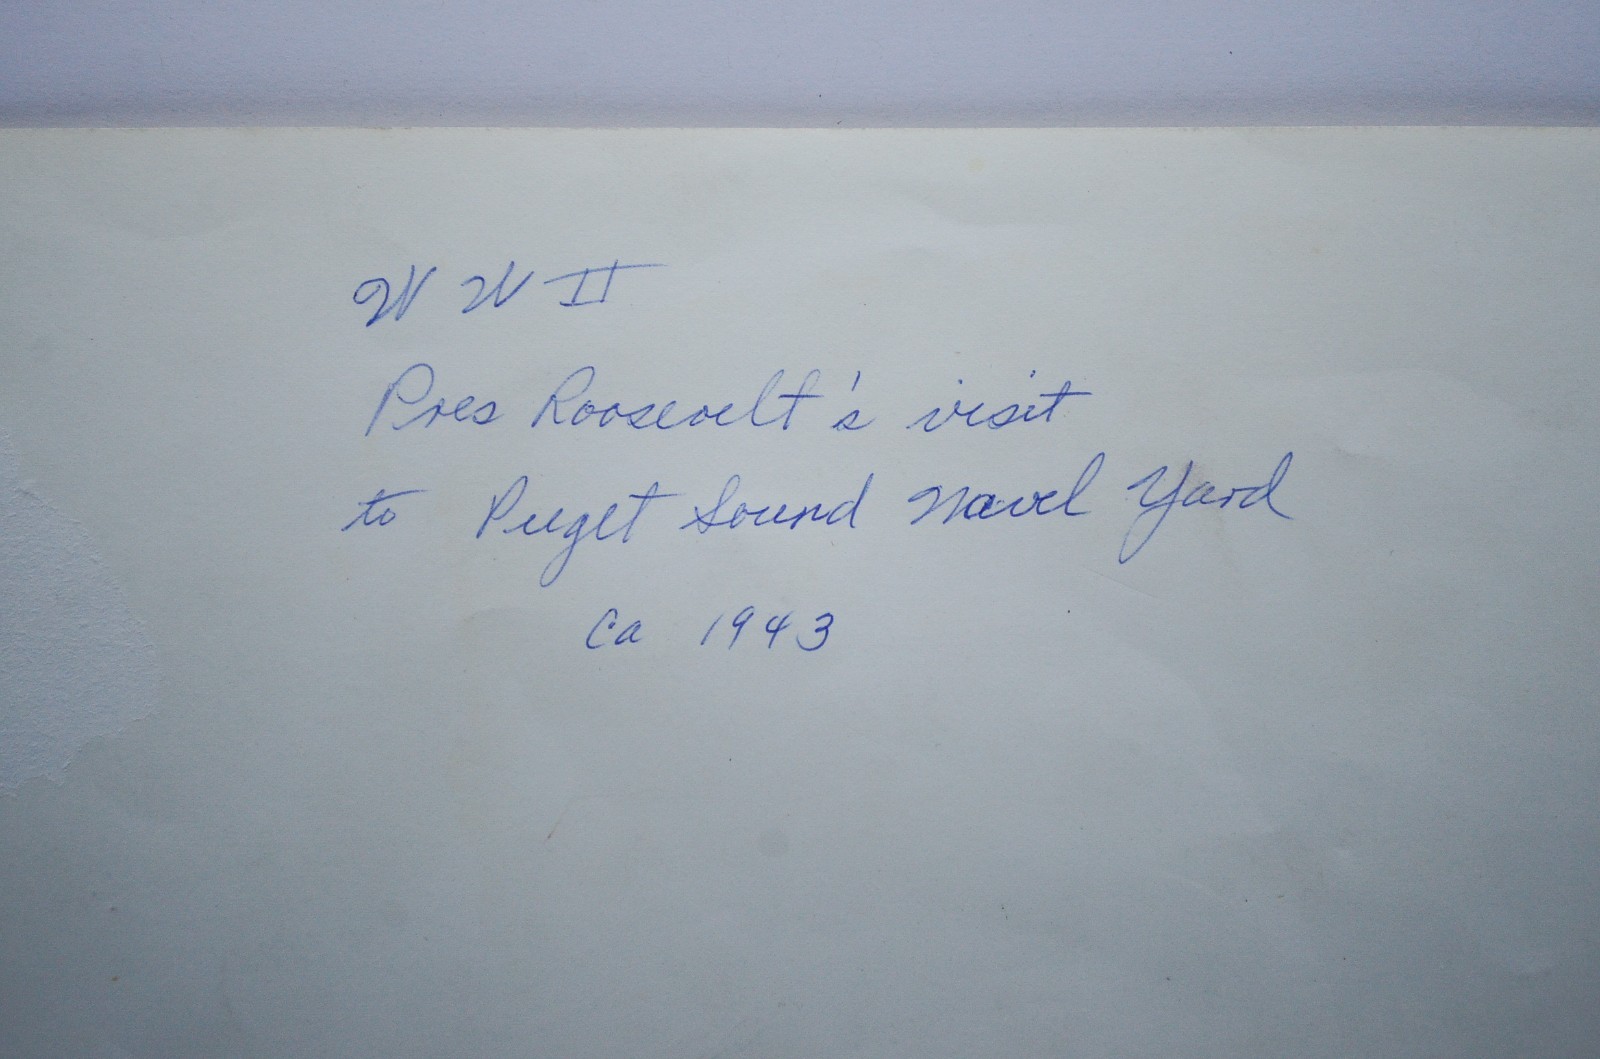 W W II
Pres Roosevelt's visit
to Puget Sound Navel Yard
Ca 1943